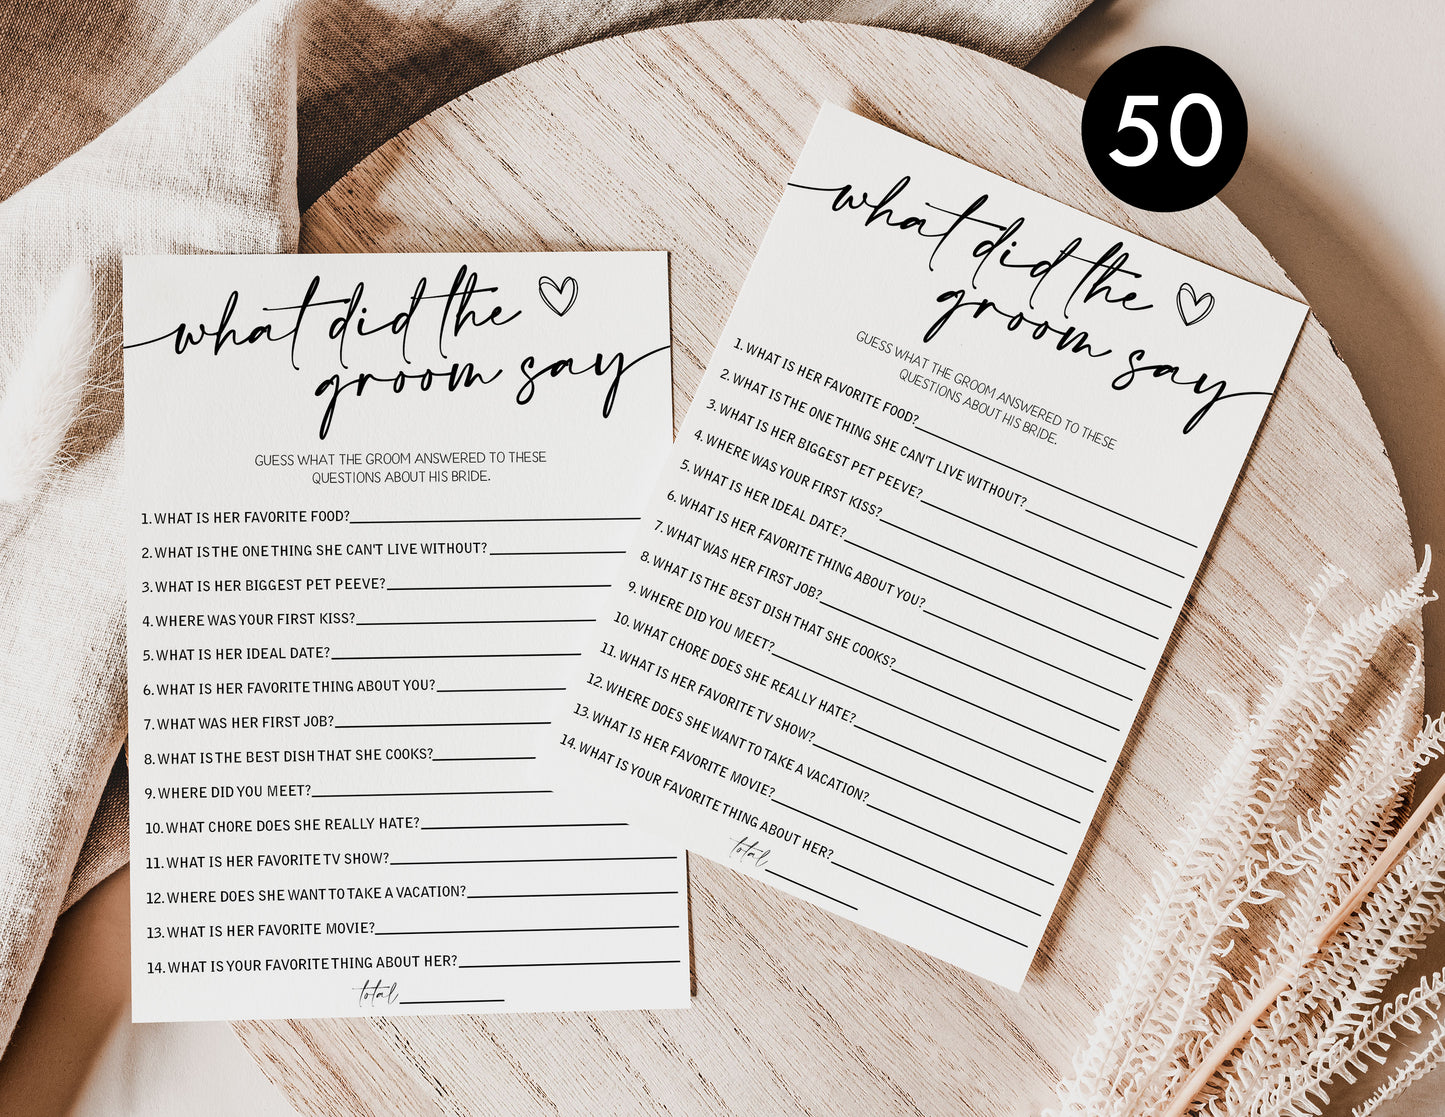 50
what did the
groom say
GUESS WHAT THE GROOM ANSWERED TO THESE
QUESTIONS ABOUT HIS BRIDE.
1. WHAT IS HER FAVORITE FOOD?
2. WHAT IS THE ONE THING SHE CAN'T LIVE WITHOUT?
3. WHAT IS HER BIGGEST PET PEEVE?
4. WHERE WAS YOUR FIRST KISS?
5. WHAT IS HER IDEAL DATE?
6. WHAT IS HER FAVORITE THING ABOUT YOU?
7. WHAT WAS HER FIRST JOB?
8. WHAT IS THE BEST DISH THAT SHE COOKS?
9. WHERE DID YOU MEET?
10. WHAT CHORE DOES SHE REALLY HATE?
11. WHAT IS HER FAVORITE TV SHOW?
12. WHERE DOES SHE WANT TO TAKE A VACATION?
13. WHAT IS HER FAVORITE MOVIE?
14. WHAT IS YOUR FAVORITE THING ABOUT HER?
total
what did the
groom say
GUESS WHAT THE GROOM ANSWERED TO THESE
QUESTIONS ABOUT HIS BRIDE.
1. WHAT IS HER FAVORITE FOOD?
2. WHAT IS THE ONE THING SHE CAN'T LIVE WITHOUT?
3. WHAT IS HER BIGGEST PET PEEVE?
4. WHERE WAS YOUR FIRST KISS?
5. WHAT IS HER IDEAL DATE?
6. WHAT IS HER FAVORITE THING ABOUT YOU?
7. WHAT WAS HER FIRST JOB?
8. WHAT IS THE BEST DISH THAT SHE COOKS?
9. WHERE DID YOU MEET?
10. WHAT CHORE DOES SHE REALLY HATE?
11. WHAT IS HER FAVORITE TV SHOW?
12. WHERE DOES SHE WANT TO TAKE A VACATION?
13. WHAT IS HER FAVORITE MOVIE?
14. WHAT IS YOUR FAVORITE THING ABOUT HER?
total